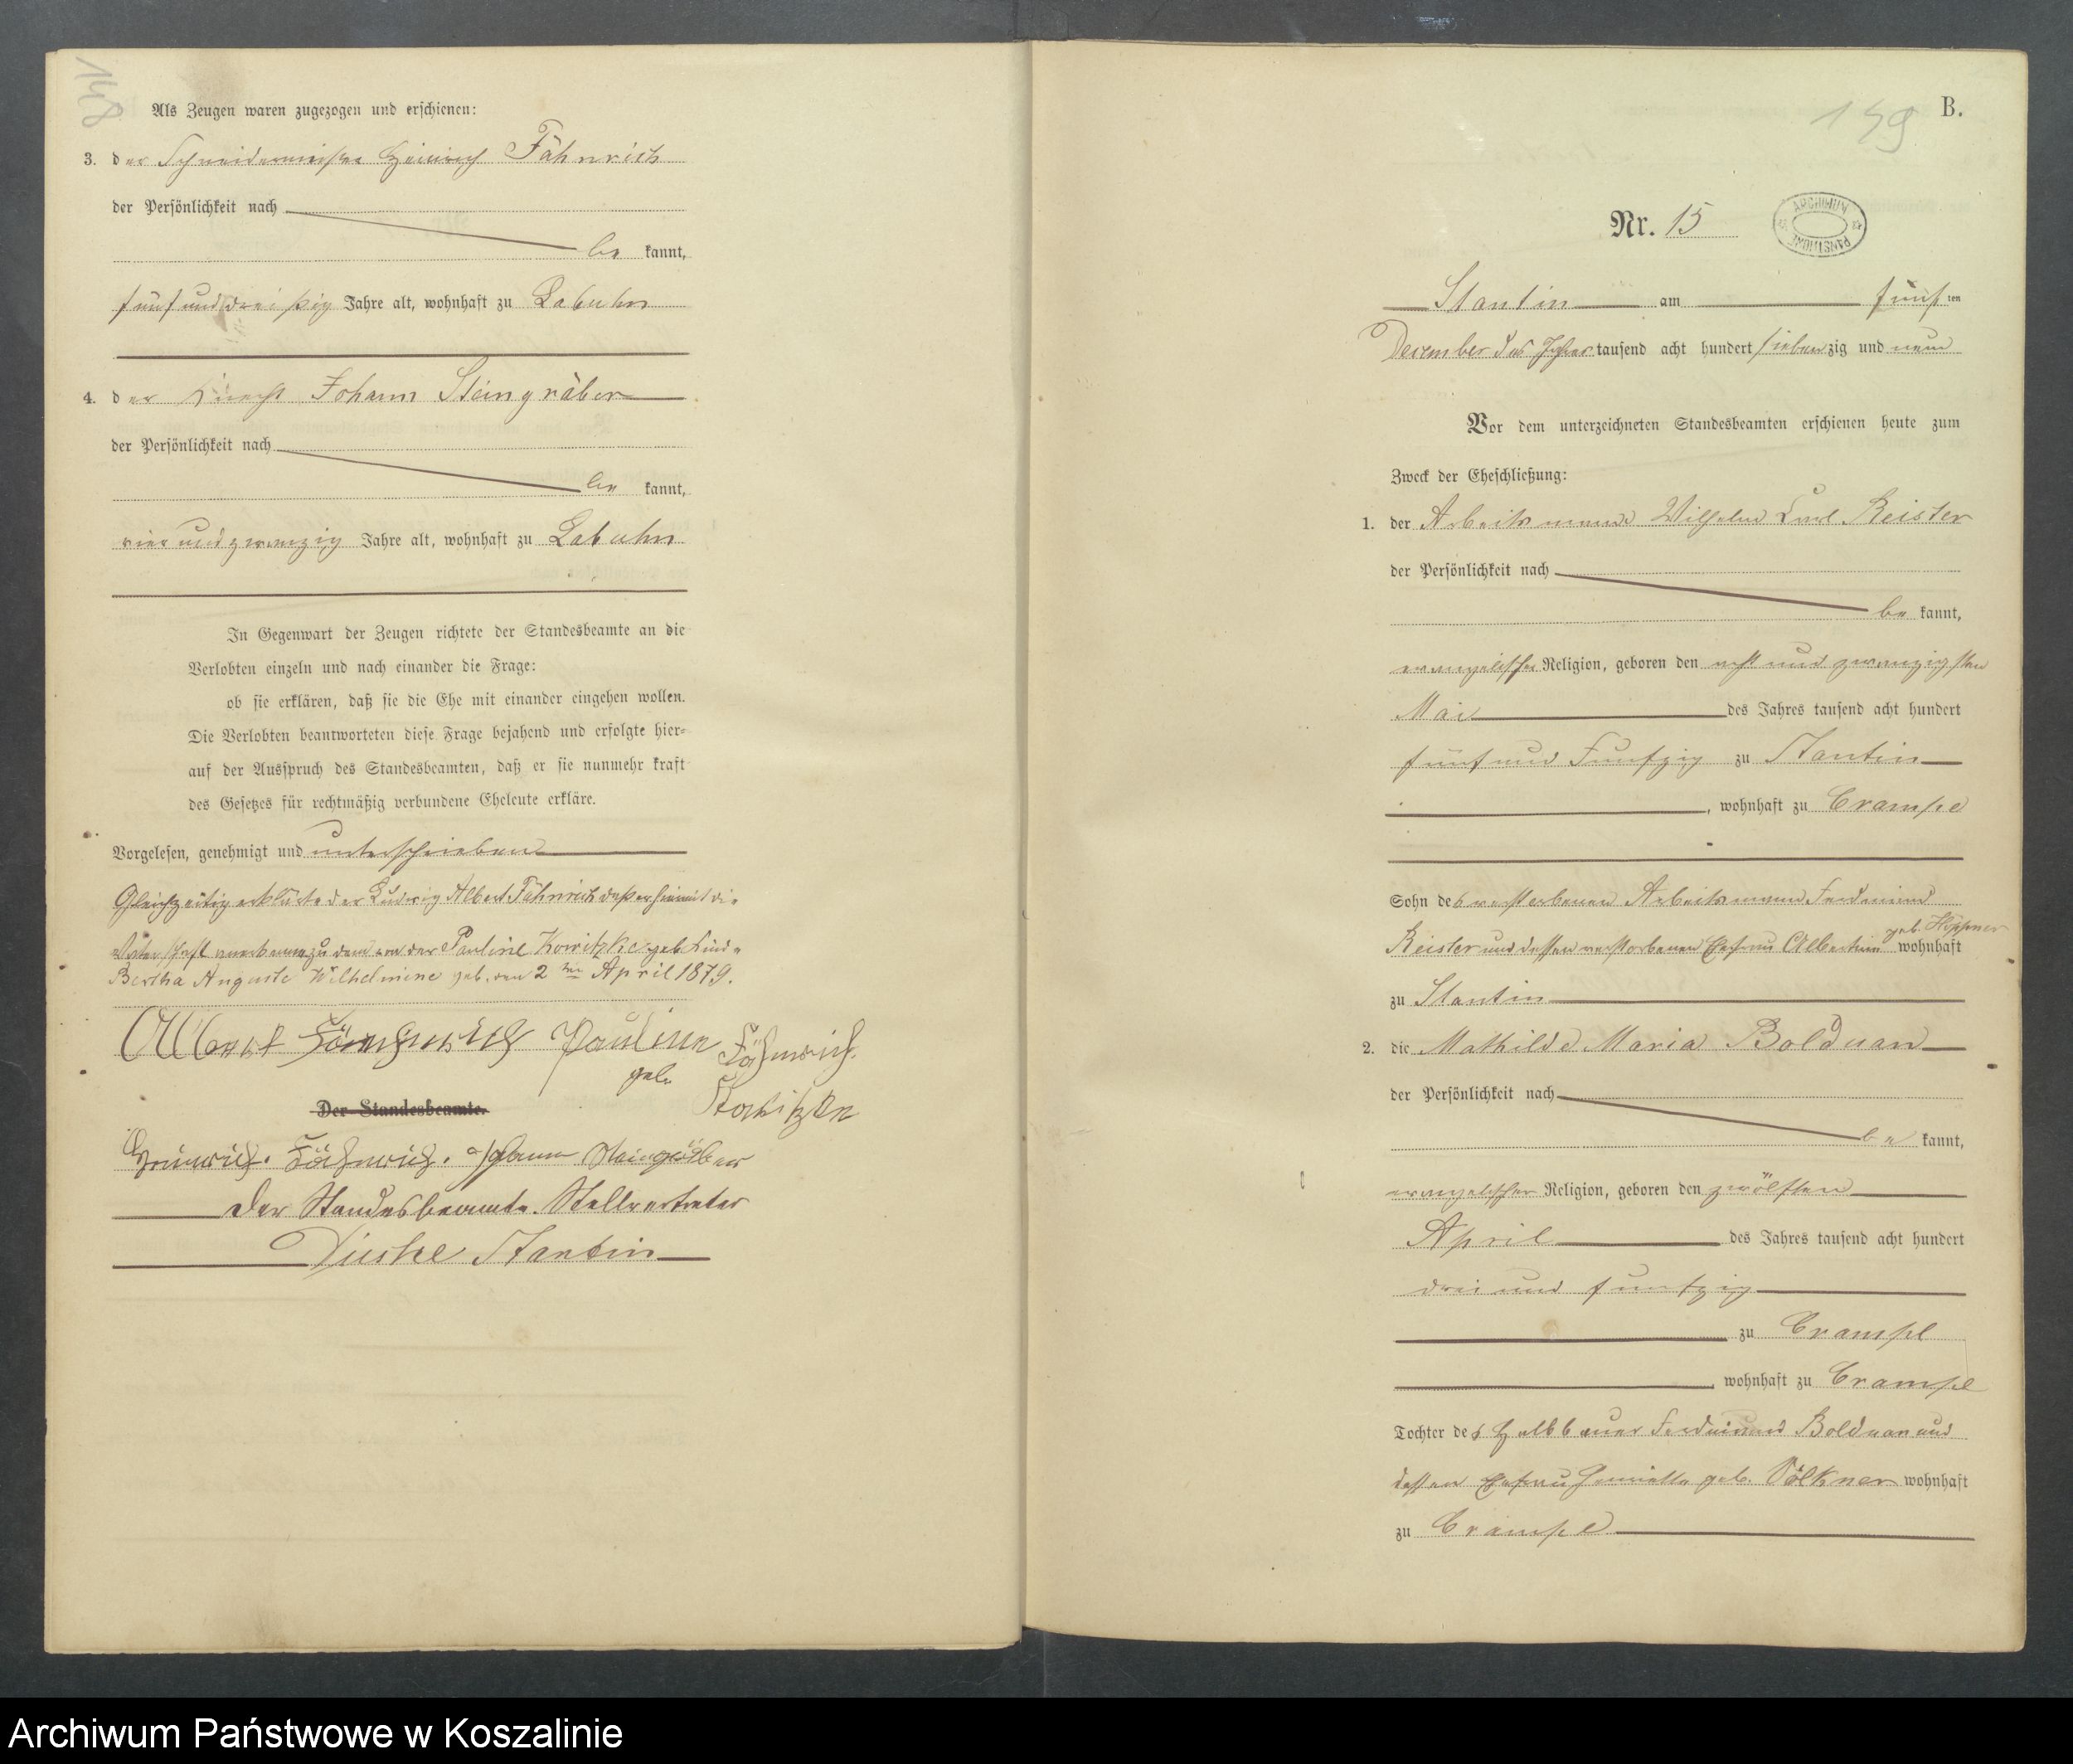 148
Als Zeugen waren zugezogen und erschienen:
3. der Schneidermeister Heinrich Fähnrich
der Persönlichkeit nach
be kannt,
fünf und dreißig Jahre alt, wohnhaft zu Labuhn
4. der Knecht Johann Steingräber
der Persönlichkeit nach
be kannt,
vier und zwanzig Jahre alt, wohnhaft zu Labuhn
In Gegenwart der Zeugen richtete der Standesbeamte an die
Verlobten einzeln und nach einander die Frage:
ob sie erklären, daß sie die Ehe mit einander eingehen wollen.
Die Verlobten beantworteten diese Frage bejahend und erfolgte hier-
auf der Ausspruch des Standesbeamten, daß er sie nunmehr kraft
des Gesetzes für rechtmäßig verbundene Eheleute erkläre.
Vorgelesen, genehmigt und unterschrieben
Gleichzeitig erklärte der Ludwig Albert Fähnrich daß er hiermit die
Vaterschaft anerkenne zu dem von der Pauline Kowitzke geb. Kinde
Bertha Auguste Wilhelmine geb. den 2ten April 1879.
Albert Fähnrich Pauline Fähnrich
geb.
Kowitzke
Der Standesbeamte.
Heinrich Fähnrich. Johann Steingräber
Der Standesbeamte. Stellvertreter
Stantin
149
B.
Nr. 15
ARCHIWUM PAŃSTWOWE
Stantin am fünf ten
December des Jahres tausend acht hundert siebenzig und neun
Vor dem unterzeichneten Standesbeamten erschienen heute zum
Zweck der Eheschließung:
1. der Arbeitsmann Wilhelm Carl Reister
der Persönlichkeit nach
be kannt,
evangelischer Religion, geboren den acht und zwanzigsten
Mai des Jahres tausend acht hundert
fünf und Funfzig zu Stantin
, wohnhaft zu Crampe
Sohn des verstorbenen Arbeitsmann Ferdinand
geb. Höppner
Reister und dessen verstorbenen Ehefrau Albertine wohnhaft
zu Stantin
2. die Mathilde Maria Bolduan
der Persönlichkeit nach
be kannt,
evangelischer Religion, geboren den zwölften
April des Jahres tausend acht hundert
drei und funfzig
zu Crampe
, wohnhaft zu Crampe
Tochter des Halbbauer Ferdinand Bolduan und
dessen Ehefrau Henriette geb. Völkner wohnhaft
zu Crampe
Archiwum Państwowe w Koszalinie